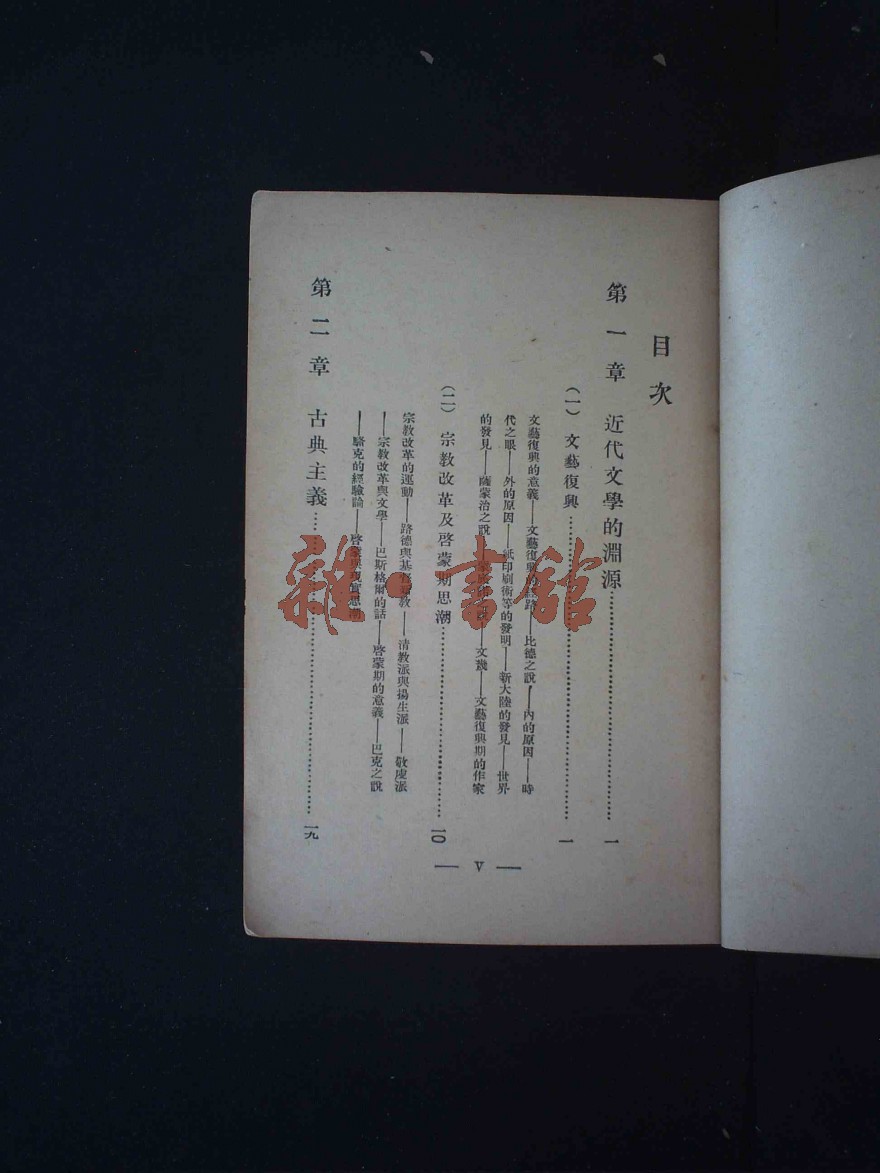 目次
第一章 近代文學的淵源……一
(一) 文藝復興……一
文藝復興的意義——文藝復興的經路——比德之說——內的原因——時
代之眼——外的原因——紙印刷術等的發明——新大陸的發見——世界
的發見——薩蒙治之說——之說——文——文藝復興期的作家
(二) 宗教改革及啓蒙期思潮……一〇
宗教改革的運動——路德與基督教——清教派與揚生派——敬虔派
——宗教改革與文學——巴斯格爾的話——啓蒙期的意義——巴克之說
——騷克的經驗論——啓蒙與現實思潮
第二章 古典主義……一九
— V —
雜·書館